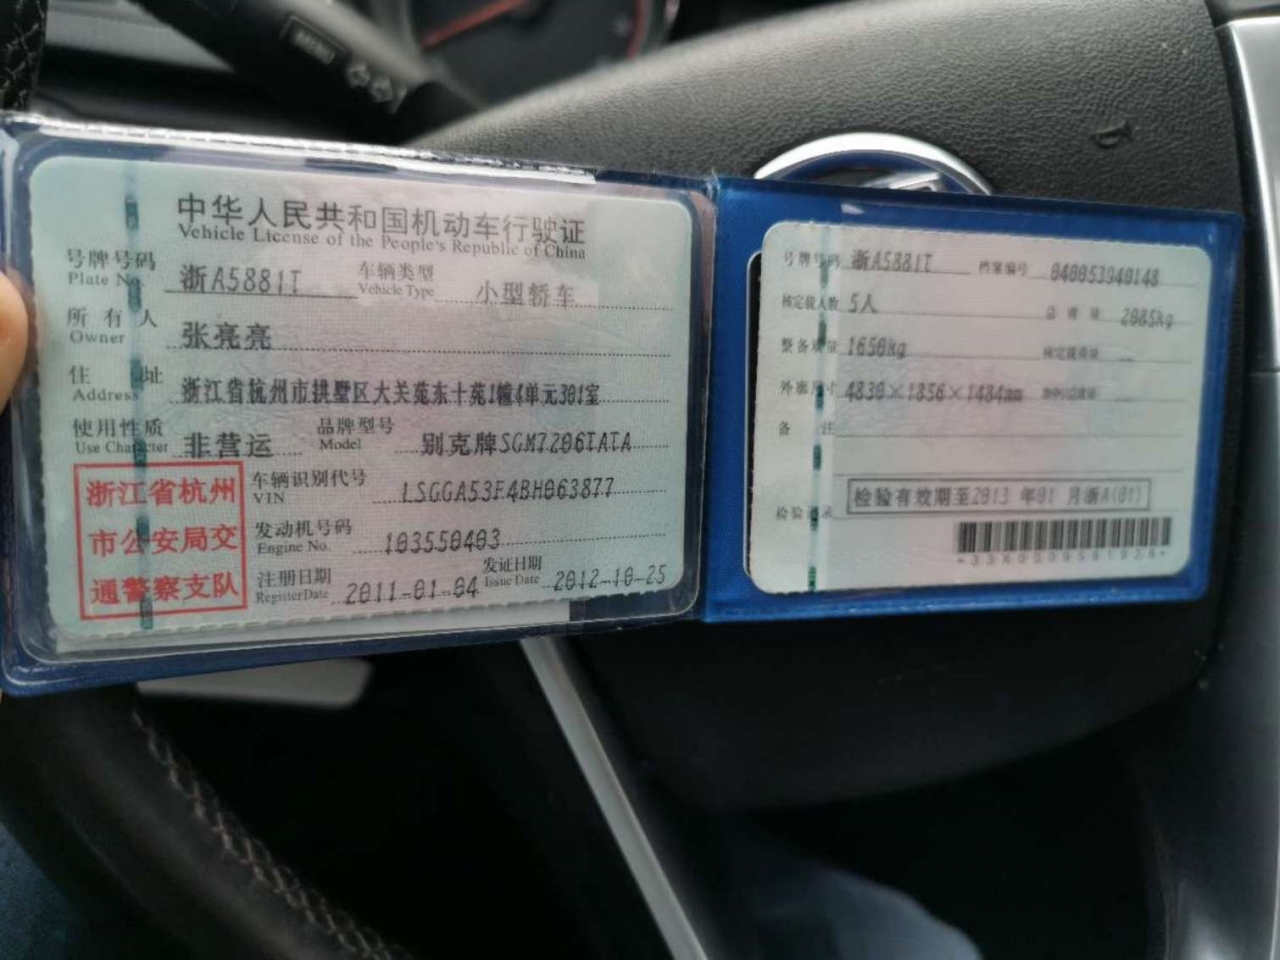 MENU
中华人民共和国机动车行驶证
Vehicle License of the People's Republic of China
号牌号码 浙A5881T 车辆类型 小型轿车
Plate No. Vehicle Type
所有人 张亮亮
Owner
住址 浙江省杭州市拱墅区大关苑东十苑1幢4单元301室
Address
使用性质 非营运 品牌型号 别克牌SGM7206TATA
Use Character Model
浙江省杭州
市公安局交
通警察支队
车辆识别代号 LSGGA53F4BH063877
VIN
发动机号码 103550403
Engine No.
注册日期 2011-01-04 发证日期 2012-10-25
Register Date Issue Date
号牌号码 浙A5881T 档案编号 040053940148
核定载人数 5人 总质量 2085kg
整备质量 1650kg 核定载质量 --
外廓尺寸 4830×1856×1484mm --
备注
检验记录 检验有效期至2013年01月浙A(01)